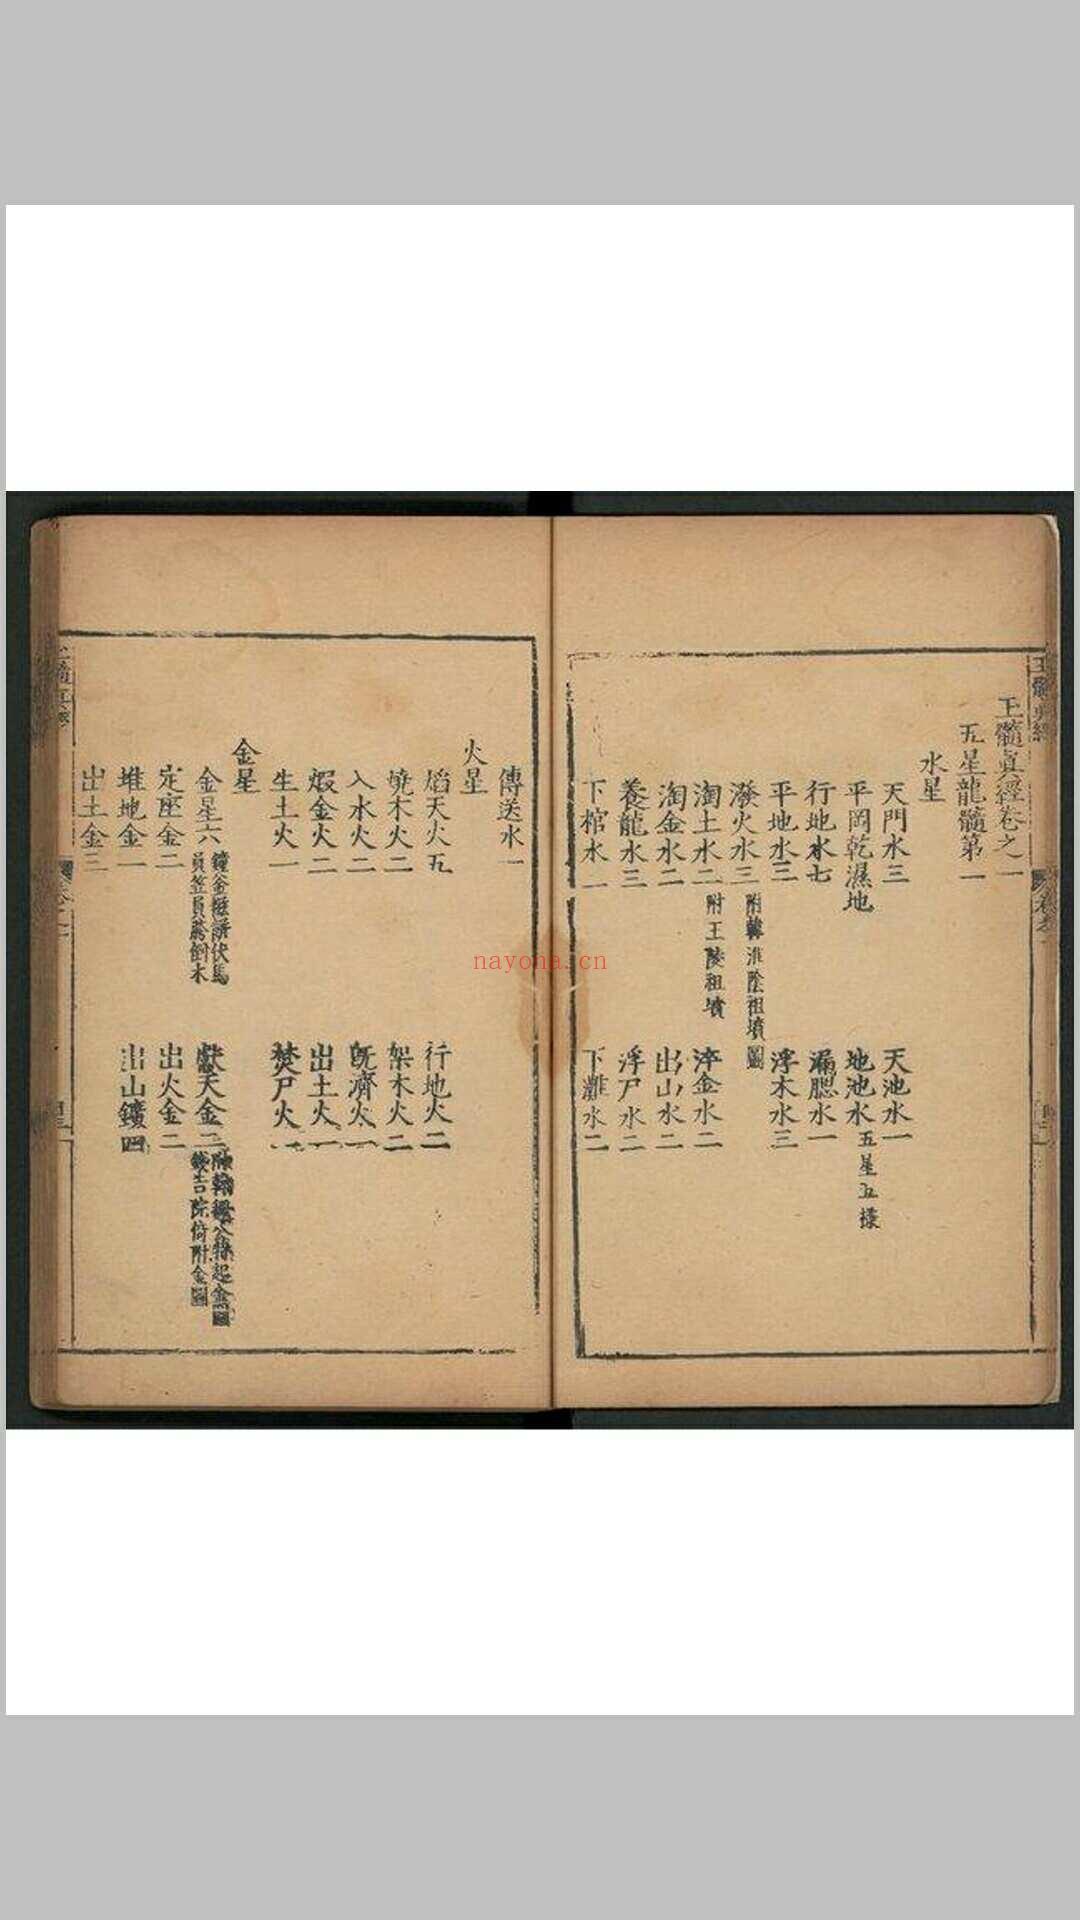 玉髓真經
卷之一
玉髓眞經卷之一
五星龍髓第一
水星
天門水三
天池水一
平岡乾濕地
地池水五星五樣
行地水七
漏腮水一
平地水三
浮木水三
潑火水三附韓淮陰祖墳圖
淘土水二附王陵祖墳
淬金水二
淘金水二
出山水二
養龍水三
浮尸水二
下棺水一
下灘水二
傳送水一
火星
焰天火五
行地火二
燒木火二
架木火二
入水火二
旣濟火一
煆金火二
出土火一
生土火一
焚尸火一
金星
金星六
獻天金三
定座金二
出火金二
堆地金一
出山鑛四
出土金三
nayona.cn